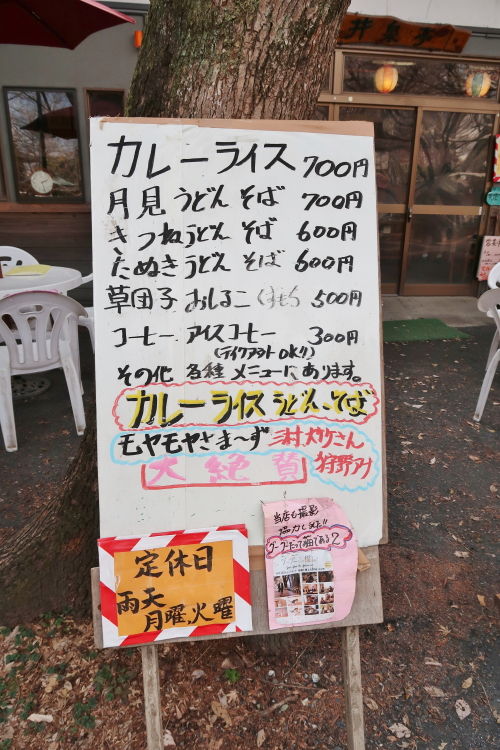 カレーライス 700円
月見うどん そば 700円
きつねうどん そば 600円
たぬきうどん そば 600円
草団子 おしるこ 500円
コーヒー アイスコーヒー 300円
(テイクアウトOKよ!!)
その他 各種 メニューにあります。
カレーライス うどん、そば
モヤモヤさま〜ず 三村 大竹さん
狩野アナ
大絶賛
当店も撮影
協力しました!!
グーグーだって猫である2
定休日
雨天
月曜、火曜